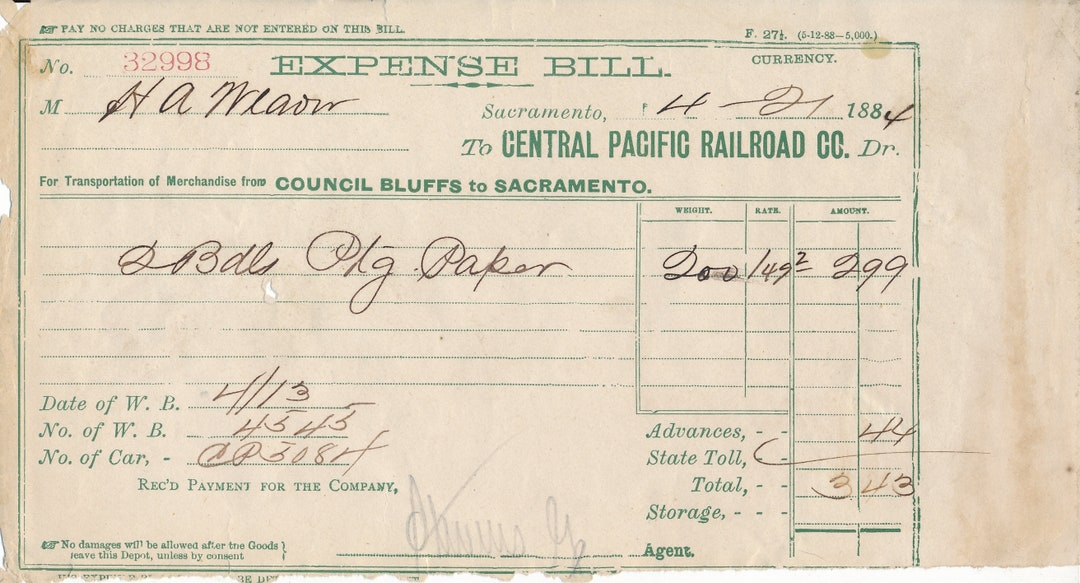 ☞ PAY NO CHARGES THAT ARE NOT ENTERED ON THIS BILL.
F. 27½. (5-12-83—5,000.)
No. 32998 EXPENSE BILL. CURRENCY.
M H A Weaver Sacramento, 4 - 21 1884
To CENTRAL PACIFIC RAILROAD CO. Dr.
For Transportation of Merchandise from COUNCIL BLUFFS to SACRAMENTO.
WEIGHT. RATE. AMOUNT.
2 Bdls Ptg. Paper 200 149 2 2 99
Date of W. B. 4/13
No. of W. B. 4545
Advances, - - 44
No. of Car, - CP 3084
State Toll, - -
REC'D PAYMENT FOR THE COMPANY,
Total, - - 3 43
Storage, - - -
☞ No damages will be allowed after the Goods
leave this Depot, unless by consent
Agent.